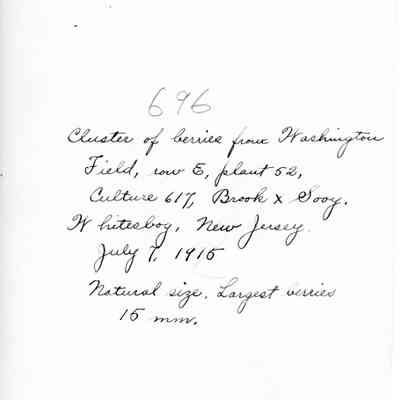 696
Cluster of berries from Washington
Field, row E, plant 52,
Culture 617, Brook x Sooy.
Whitesbog, New Jersey.
July 7, 1915
Natural size. Largest berries
15 mm.